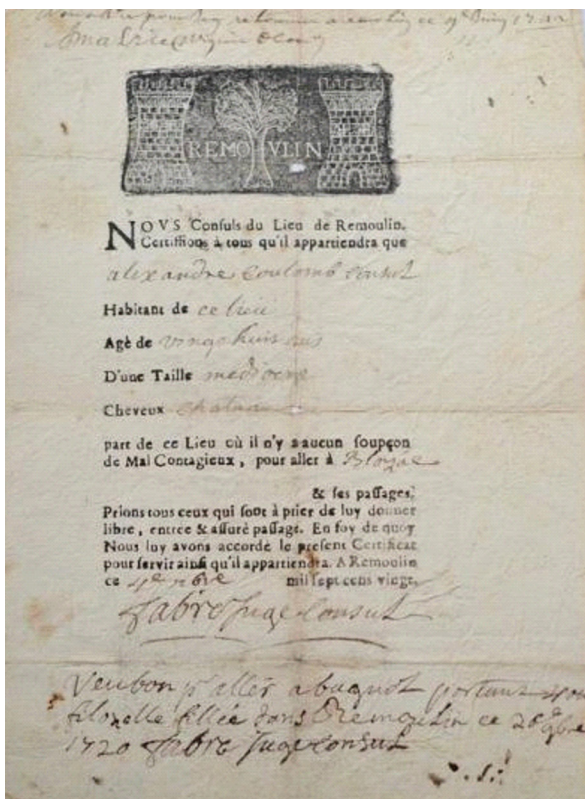 REMOVLIN
NOVS Consuls du Lieu de Remoulin.
Certiffions à tous qu'il appartiendra que
alexandre Coulomb Consul
Habitant de ce lieu
Agè de vingt huit ans
D'une Taille mediocre
Cheveux chatain
part de ce Lieu où il n'y a aucun soupçon
de Mal Contagieux, pour aller à Blozac
& ses passages,
Prions tous ceux qui sont à prier de luy donner
libre, entrée & assuré passage. En foy de quoy
Nous luy avons accordé le present Certificat
pour servir ainsi qu'il appartiendra. A Remoulin
ce mil sept cens vingt.
fabre Juge Consul
Veu bon pr aller a buquot portant
filozelle fillée dans Remoulin ce 28
1720 fabre Juge Consul